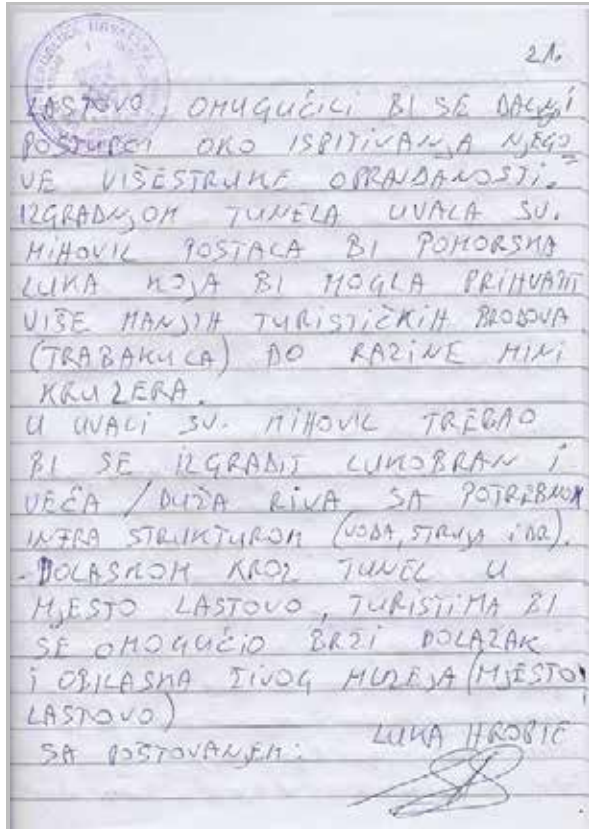 REPUBLIKA HRVATSKA
21.
LASTOVO OMUGUČILI BI SE DALNJI
POSTUPCI OKO ISPITIVANJA NJEGO
VE VIŠESTRUKE OPRAVDANOSTI.
IZGRADNJOM TUNELA UVALA SV.
MIHOVIL POSTALA BI POMORSKA
LUKA KOJA BI MOGLA PRIHVATIT
VIŠE MANJIH TURISTIČKIH BRODOVA
(TRABAKULA) DO RAZINE MINI
KRUZERA.
U UVALI SV. MIHOVIL TREBAO
BI SE IZGRADIT LUKOBRAN I
VEČA / DUŽA RIVA SA POTREBNOM
INFRA STRUKTUROM (VODA, STRUJA i DR).
DOLASKOM KROZ TUNEL U
MJESTO LASTOVO, TURISTIMA BI
SE OMOGUČIO BRŽI DOLAZAK
i OBILASKA ŽIVOG MUZEJA (MJESTO
LASTOVO)
LUKA HROBIĆ
SA POŠTOVANJEM: